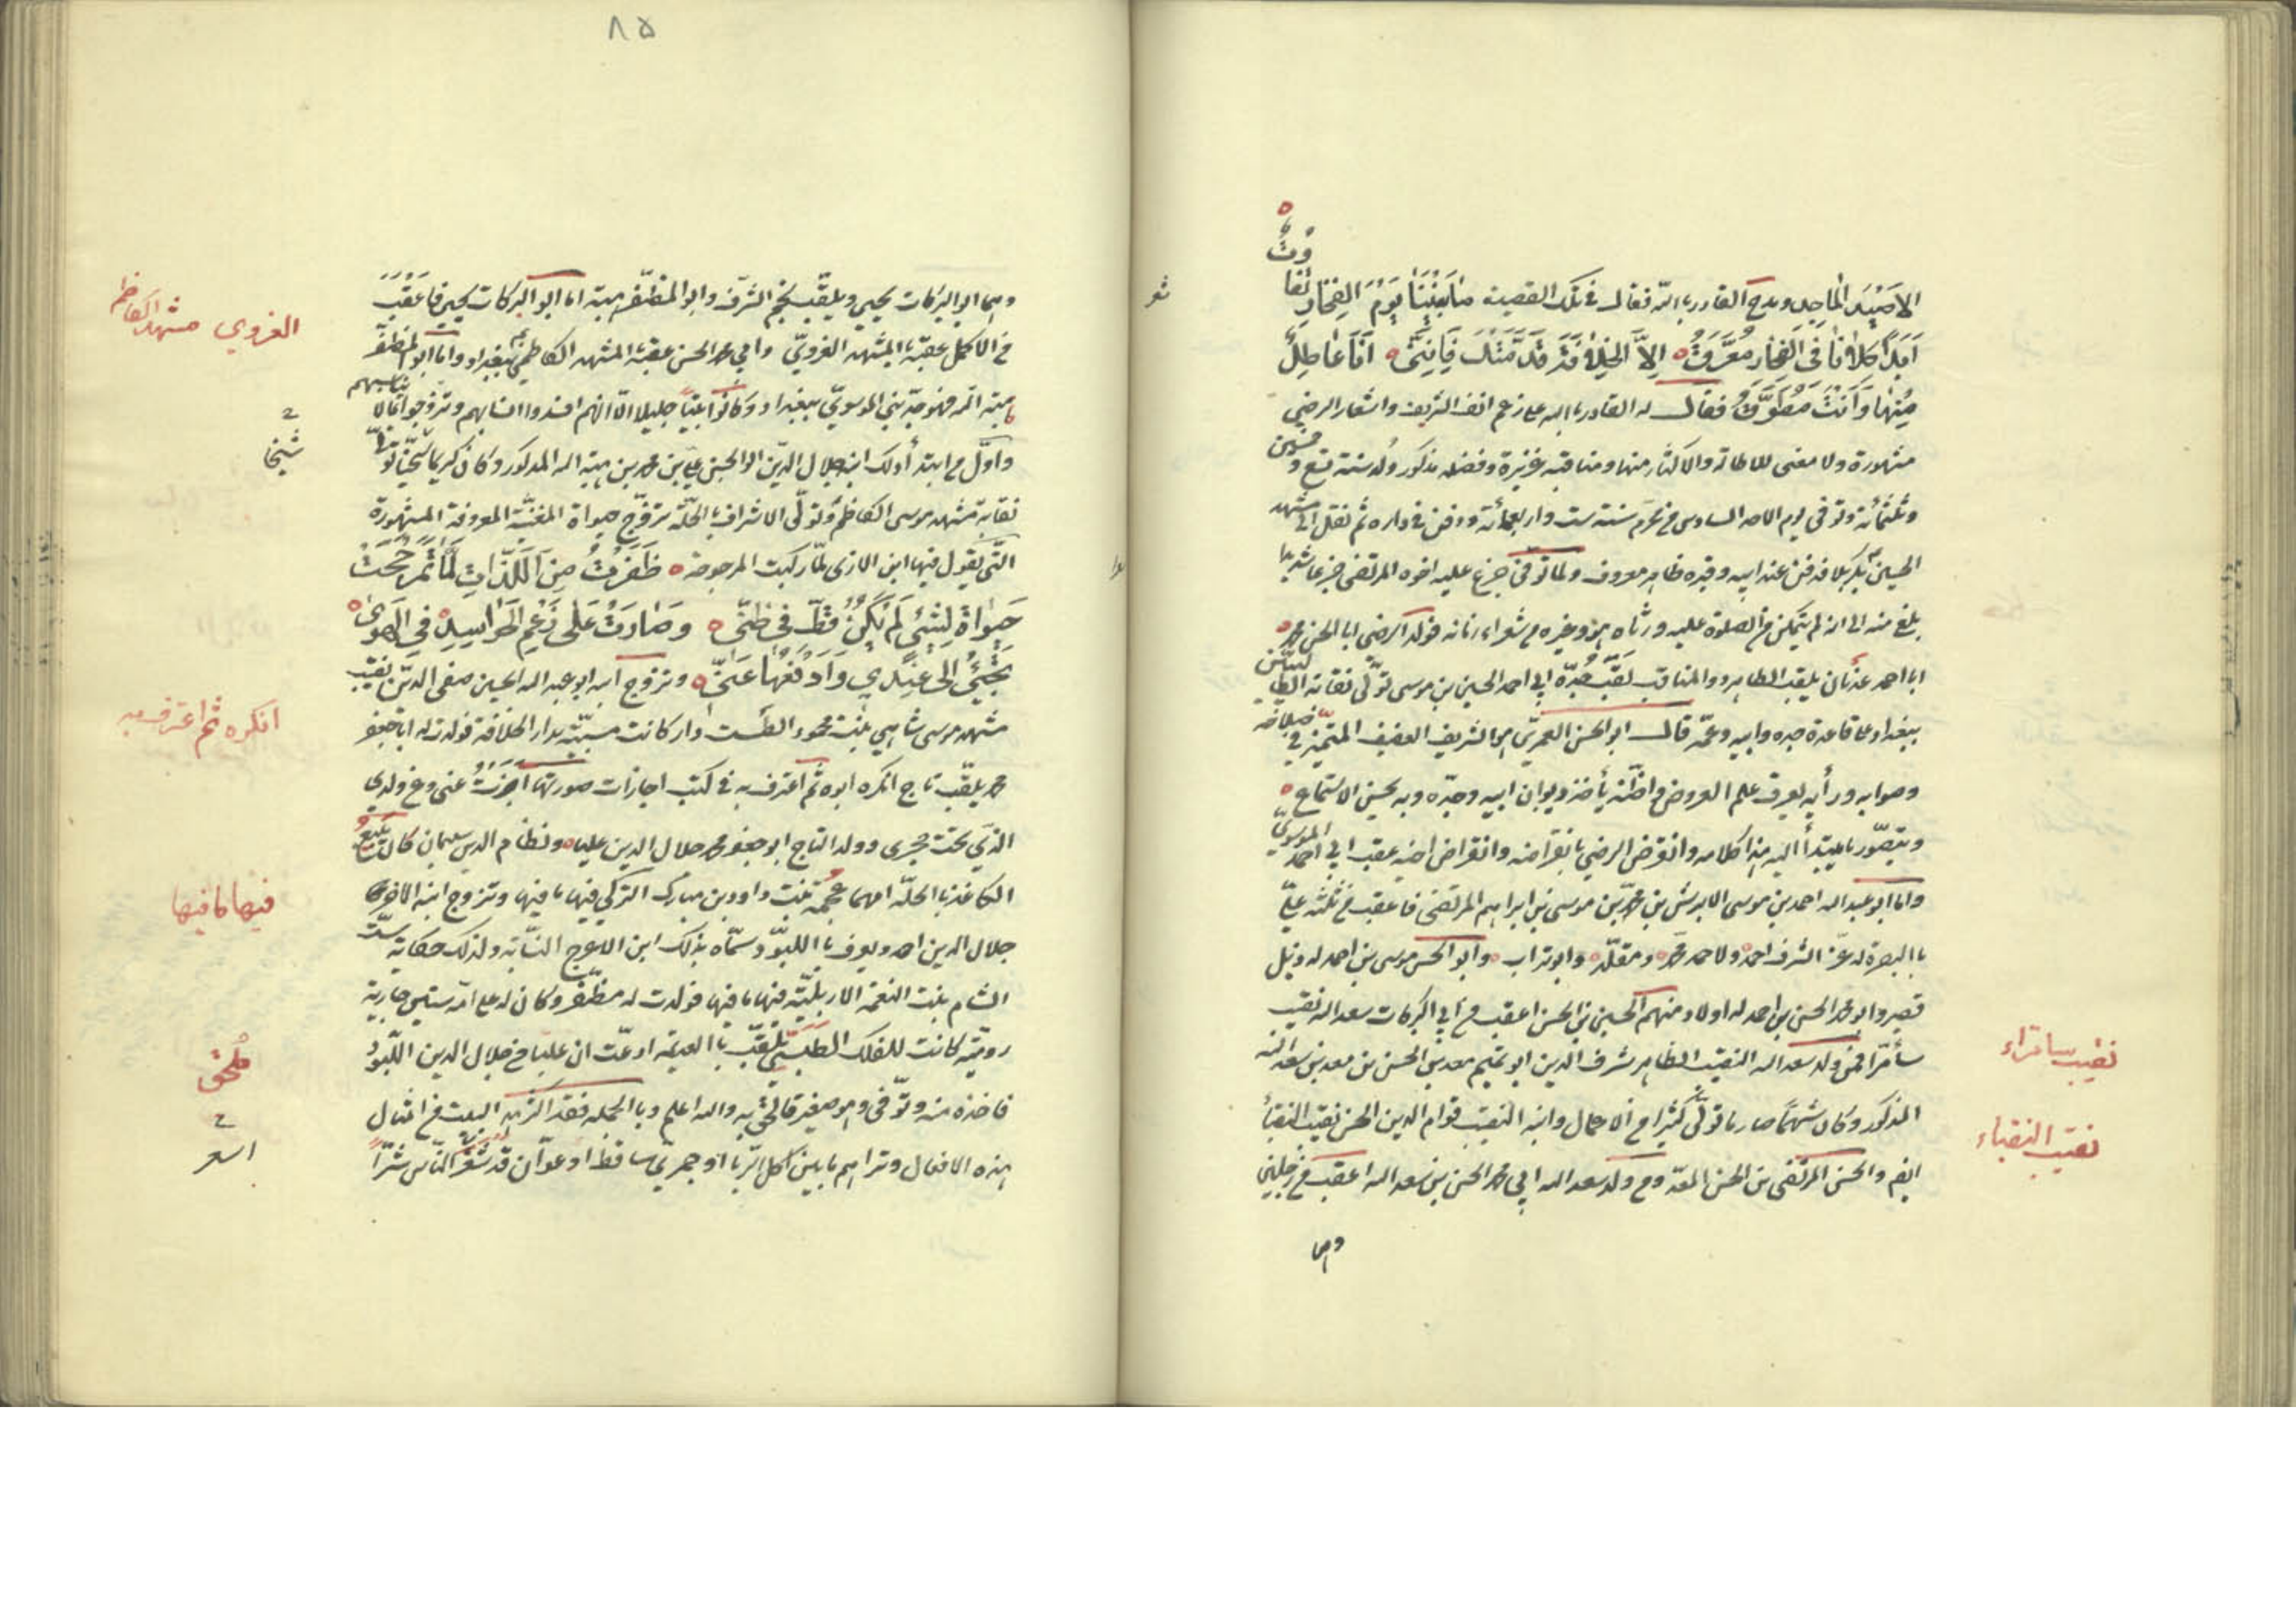 الاصيد الماجد ومدح القادر بالله فقال في تلك القصيدة ما بيننا يوم الفخار تفاوت
ابدا كلانا في الفخار معرق الا الخلافة قدمتك فانني انا عاطل
منها وانت مطوق فقال له القادر بالله على زعم انف الشريف واشعار الرضي
مشهورة ولا معنى للاطالة والاكثار منها ومناقبه غزيرة وفضله مذكور ولد سنة تسع وخمسين
وثلثمائة وتوفي يوم الاحد السادس من محرم سنة ست واربعمائة ودفن في داره ثم نقل الى مشهد
الحسين بكربلا فدفن عند ابيه وقبره ظاهر معروف ولما توفي جزع عليه اخوه المرتضى جزعا شديدا
بلغ منه الى انه لم يتمكن من الصلوة عليه ورثاه هو وغيره من شعراء زمانه فولد الرضي ابا الحسن محمد
ابا احمد عدنان يلقب الطاهر ذو المناقب لقب جده ابي احمد الحسين بن موسى تولى نقابة الطالبيين
ببغداد على قاعدة جده وابيه وعمه قال ابو الحسن العمري هو الشريف العفيف المتميز في
وصوابه ورأيه يعرف علم العروض واظنه يأخذ ديوان ابيه وجدته وبه يحسن الاستماع
ويتصور ما ينبذ اليه هذا كلامه وانقرض الرضي بانقراضه وانقراض اخيه عقب ابي احمد الموسوي
واما ابو عبد الله احمد بن موسى الابرش بن محمد بن موسى بن ابراهيم المرتضى فاعقب من ثلثة علي
بالبصرة له عز الشرف احمد ولاحمد محمد ومقلد وابو تراب وابو الحسن موسى بن احمد له ذيل
قصير وابو محمد الحسن بن احمد له اولاد منهم الحسين بن الحسن اعقب من ابي البركات سعد الله نقيب
سامرا فمن ولد سعد الله النقيب الطاهر شرف الدين ابو تميم معد بن الحسن بن معد بن سعد الله
المذكور وكان شهما صارما تولى كثيرا من الاعمال وابنه النقيب قوام الدين الحسن نقيب النقباء
ايضا والحسن المرتضى بن الحسن المعد ومن ولد سعد الله ابي محمد الحسن بن سعد الله اعقب من رجلين
وهما
شعر
نقيب سامراء
نقيب النقباء
٨٥
وهما ابو البركات يحيى ويلقب نجم الشرف وابو المظفر هبة اما ابو البركات يحيى فاعقب
من الاكمل عقبه بالمشهد الغروي وابي محمد الحسن عقبه بالمشهد الكاظمي ببغداد واما ابو المظفر
هبة الله فهو جد بني الموسوي ببغداد وكانوا بيتا جليلا الا انهم افسدوا انسابهم وتزوجوا بمن لا يناسبهم
واول من ابتدأ ذلك ابنه جلال الدين ابو الحسن علي بن محمد بن هبة الله المذكور وكان كريما سخيا تولى
نقابة مشهد موسى الكاظم وتولى الاشراف بالحلة تزوج حياة المغنية المعروفة المشهورة
التي يقول فيها ابن الازي لما ركبت المرجوحة ظفرت من اللذات لما ترجحت
حياة لشئ لم يكن قط في ظني وصارت على زعم الحراسيد في الهوى
تجئ الى عندي وادفعها عني وتزوج ابنه ابو عبد الله الحسين صفي الدين نقيب
مشهد موسى شاهي بنت محمود الطشت دار كانت مسبية بدار الخلافة فولدت له ابا جعفر
محمد يلقب تاج انكره ابوه ثم اعترف به في كتب اجازات صورتها اجزت عني وعن ولدي
الذي تحت حجري وولد التاج ابو جعفر محمد جلال الدين عليا ونظام الدين سليمان كان يبيع
الكاغذ بالحلة امهما عجمة بنت داود بن مبارك التركي فيها ما فيها وتزوج ابنه الآخر
جلال الدين احمد ويعرف باللبو وسماه بذلك ابن الاعرج النسابة ولذلك حكاية ست
الشام بنت النعمة الاربلية فيها ما فيها فولدت له مظفر وكان له على امه ستين جارية
رومية كانت لفلك الطبسي تلقب بالعديمة ادعت ان عليا من جلال الدين اللبو
فاخذه منه وتوفي وهو صغير فالحق به والله اعلم وبالجملة فقد اكثر هذا البيت من امثال
هذه الافعال وتراهم ما بين آكل الربا او جمري ساقط او عوان قد شغر الناس شرا
الغروي مشهد الكاظم
شيخا
انكره ثم اعترف به
فيها ما فيها
ملحق
اسعر